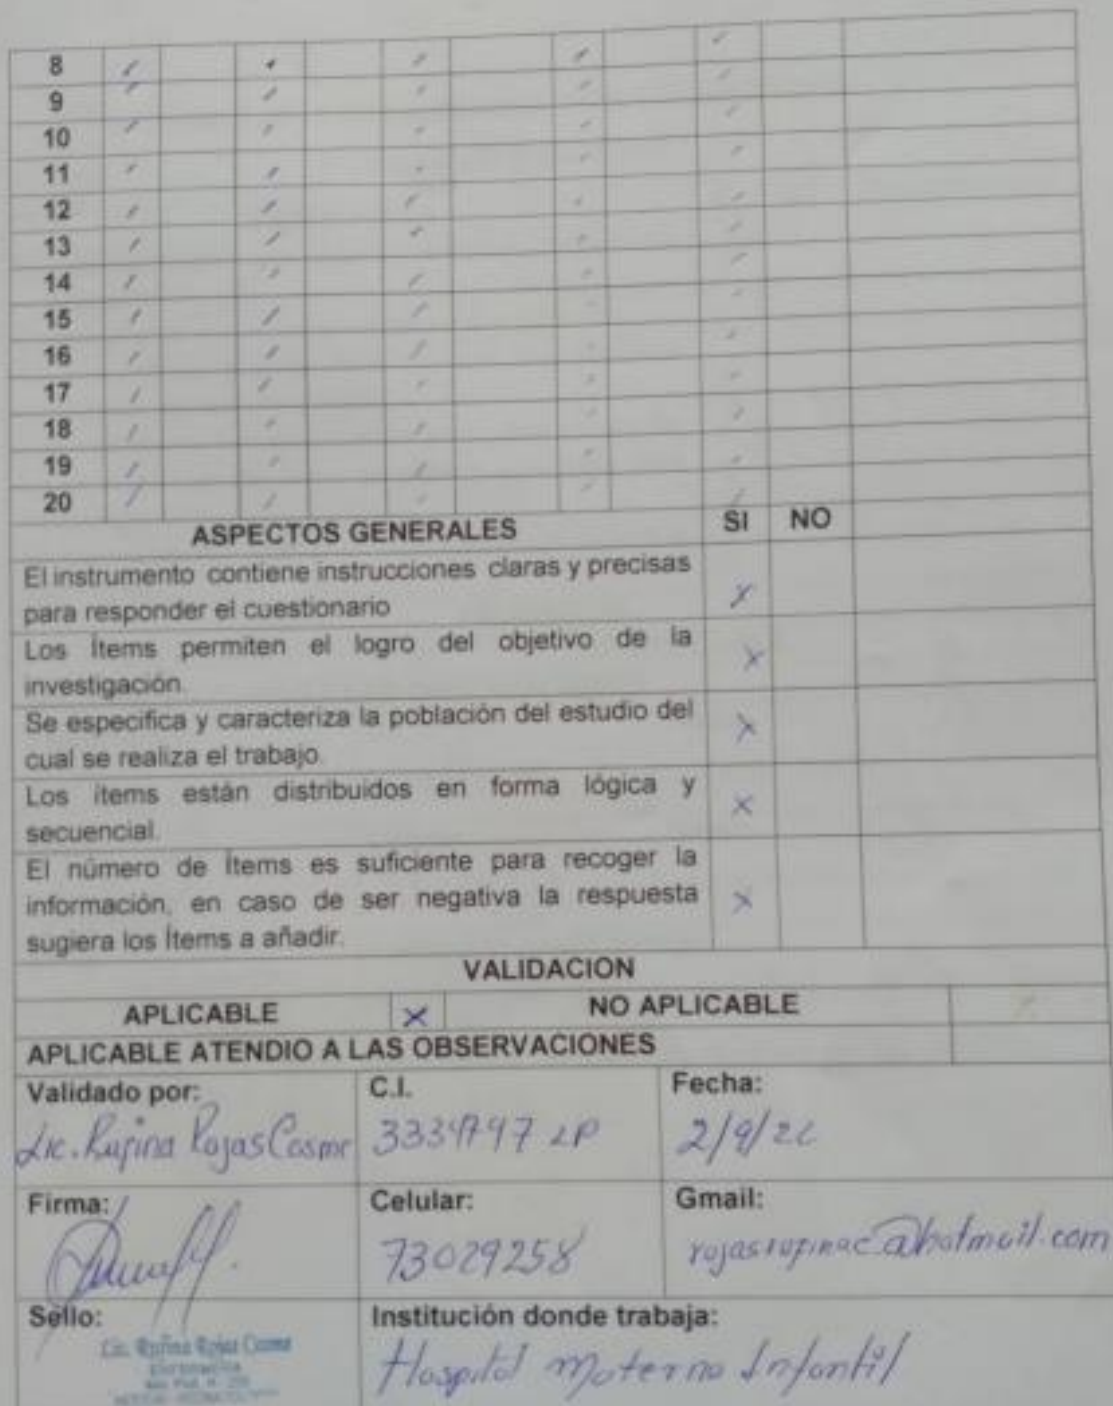 8
9
10
11
12
13
14
15
16
17
18
19
20
ASPECTOS GENERALES SI NO
El instrumento contiene instrucciones claras y precisas
para responder el cuestionario X
Los Ítems permiten el logro del objetivo de la
investigación. X
Se especifica y caracteriza la población del estudio del
cual se realiza el trabajo. X
Los ítems están distribuidos en forma lógica y
secuencial. X
El número de Ítems es suficiente para recoger la
información, en caso de ser negativa la respuesta X
sugiera los Ítems a añadir.
VALIDACION
APLICABLE X NO APLICABLE
APLICABLE ATENDIO A LAS OBSERVACIONES
Validado por: C.I. Fecha:
Lic. Rufina Rojas Cosme LP 2/9/22
Firma: Celular: Gmail:
73029258 rojasrufinac@hotmail.com
Sello: Institución donde trabaja:
Lic. Rufina Rojas Cosme
Hospital Materno Infantil